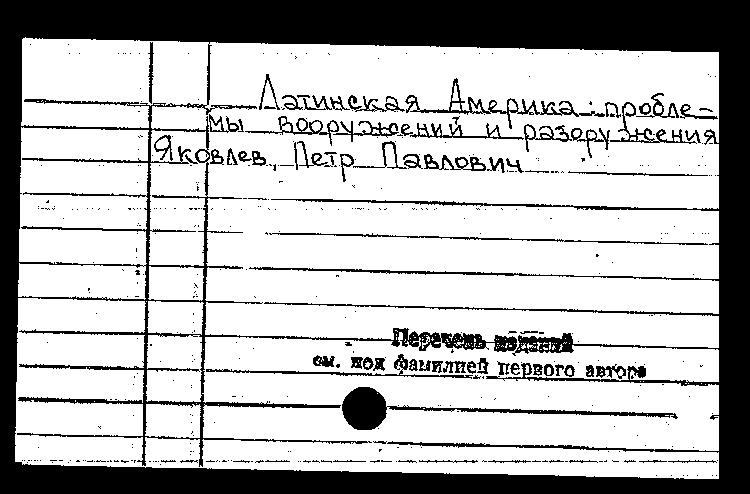 Латинская Америка: пробле-
мы вооружений и разоружения
Яковлев, Петр Павлович
Перечень изданий
см. под фамилией первого автора